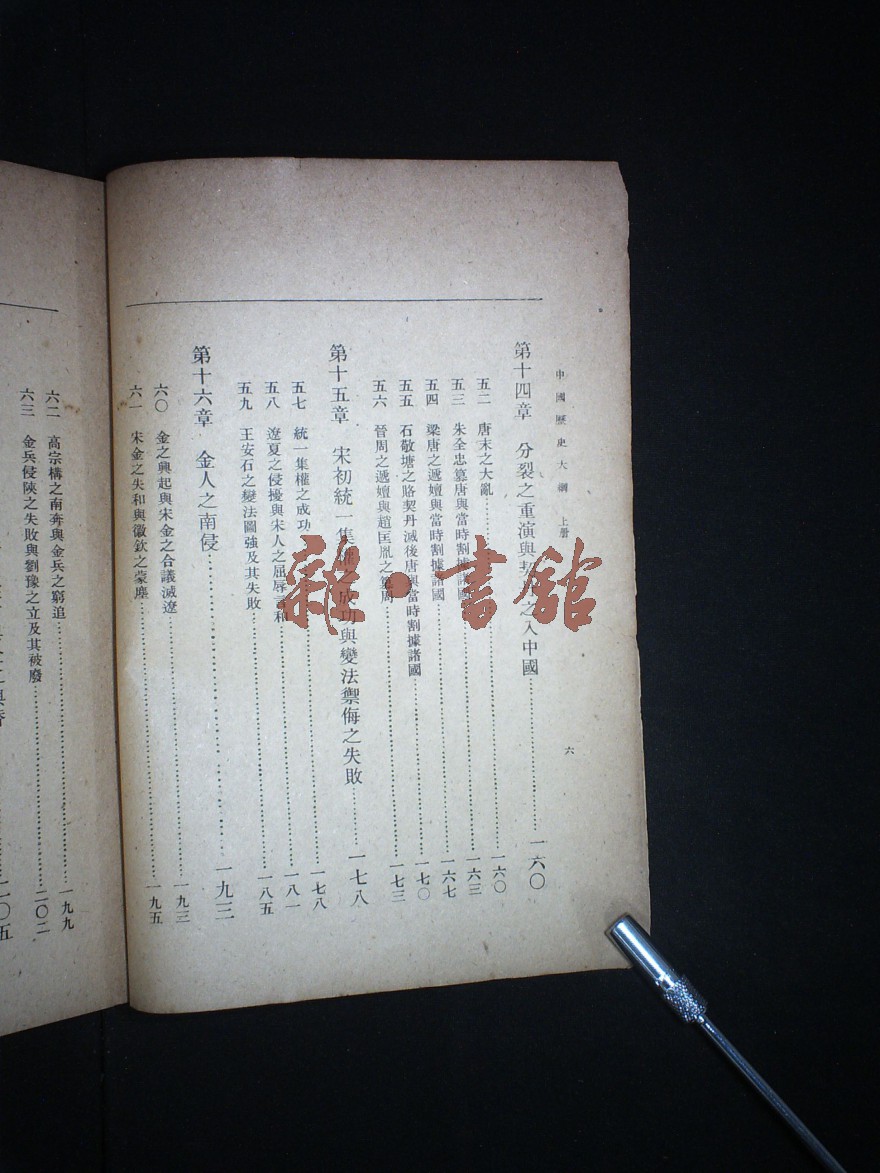 中國歷史大綱 上册
六
第十四章 分裂之重演與契丹之入中國……一六〇
五二 唐末之大亂……一六〇
五三 朱全忠篡唐與當時割據諸國……一六三
五四 梁唐之遞嬗與當時割據諸國……一六七
五五 石敬塘之賂契丹滅後唐與當時割據諸國……一七〇
五六 晉周之遞嬗與趙匡胤之篡周……一七三
第十五章 宋初統一集權之成功與變法禦侮之失敗……一七八
五七 統一集權之成功……一七八
五八 遼夏之侵擾與宋人之屈辱言和……一八一
五九 王安石之變法圖強及其失敗……一八五
第十六章 金人之南侵……一九三
六〇 金之興起與宋金之合議滅遼……一九三
六一 宋金之失和與徽欽之蒙塵……一九五
六二 高宗構之南奔與金兵之窮追……一九九
六三 金兵侵陝之失敗與劉豫之立及其被廢……二〇二
二〇五
雜·書館